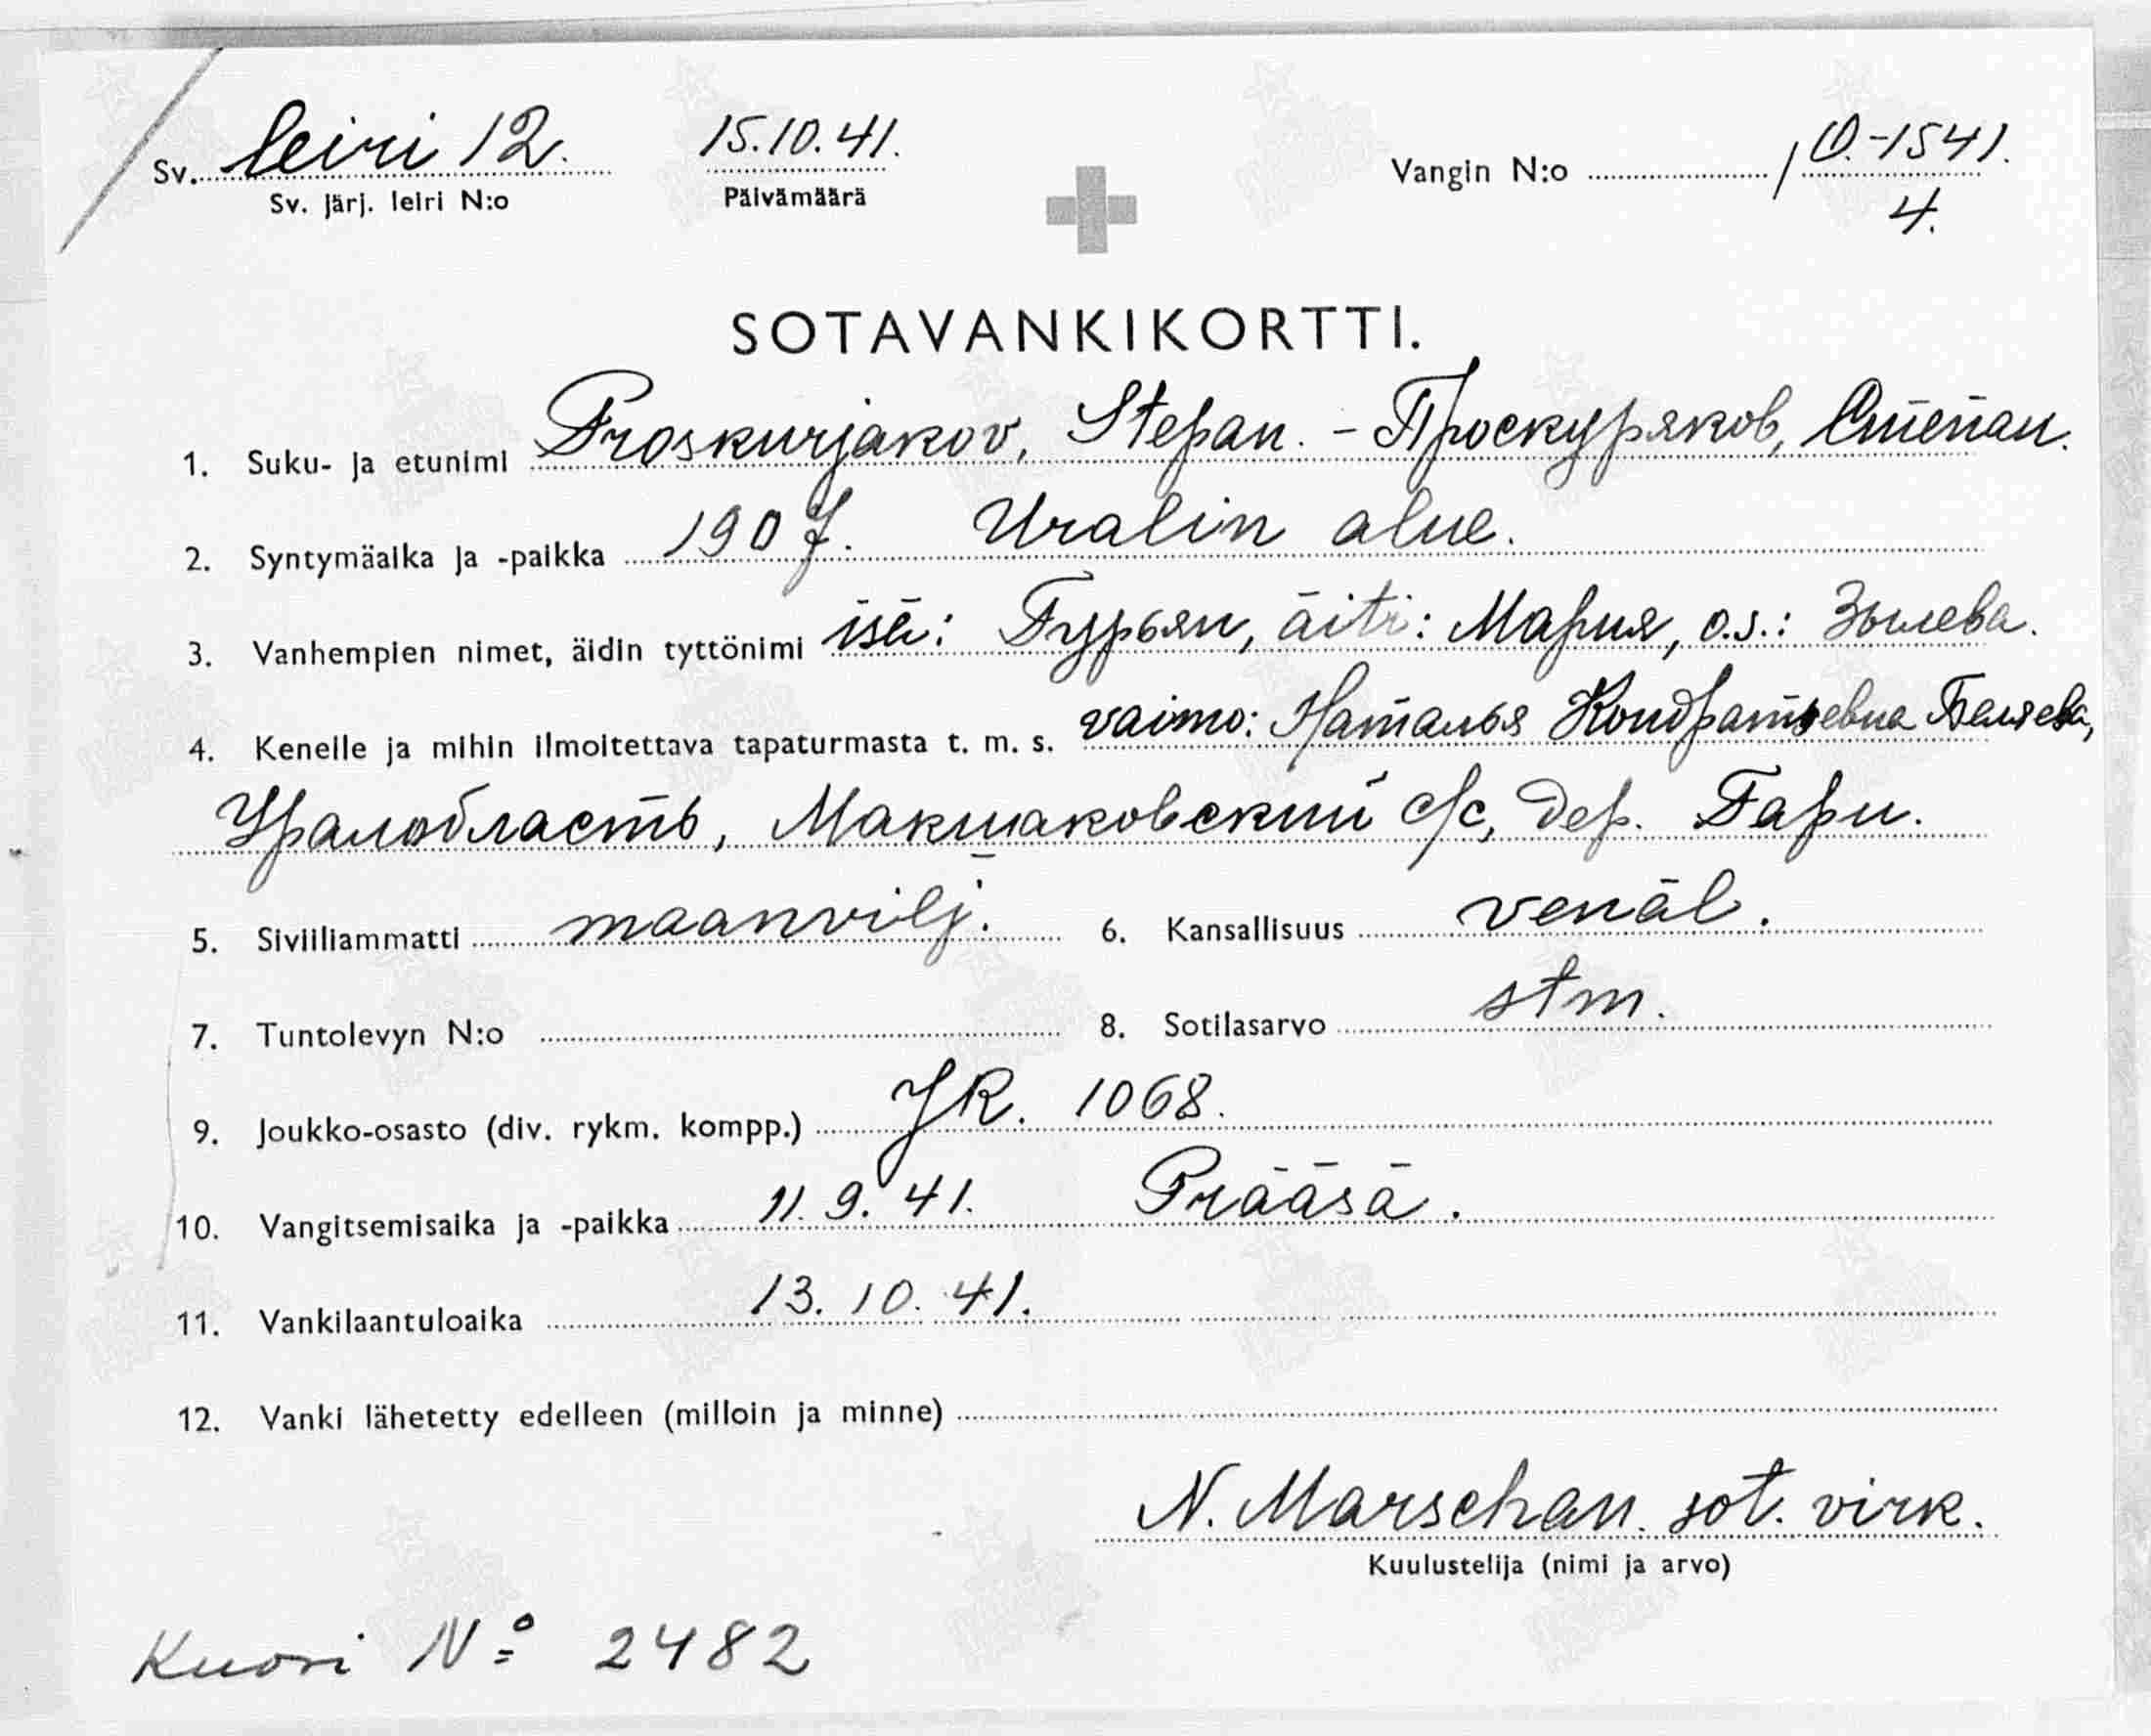 Sv. leiri 12. 15.10.41. Vangin N:o / O.-1541.
Sv. järj. leiri N:o Päivämäärä 4.
SOTAVANKIKORTTI.
1. Suku- ja etunimi Proskurjakov, Stepan. - Проскуряков, Степан.
2. Syntymäaika ja -paikka 1907. Uralin alue.
3. Vanhempien nimet, äidin tyttönimi isä: Гурьян, äiti: Мария, o.s.:
4. Kenelle ja mihin ilmoitettava tapaturmasta t. m. s. vaimo: Наталья Кондратьевна Беляева,
Уралобласть, Макшаковский с/с, дер. Гари.
5. Siviiliammatti maanvilj. 6. Kansallisuus venäl.
7. Tuntolevyn N:o 8. Sotilasarvo stm.
9. Joukko-osasto (div. rykm. kompp.) JR. 1068.
10. Vangitsemisaika ja -paikka 11.9.41. Prääsä.
11. Vankilaantuloaika 13.10.41.
12. Vanki lähetetty edelleen (milloin ja minne)
N. Marschan sot. virk.
Kuulustelija (nimi ja arvo)
Kuori Nº 2482